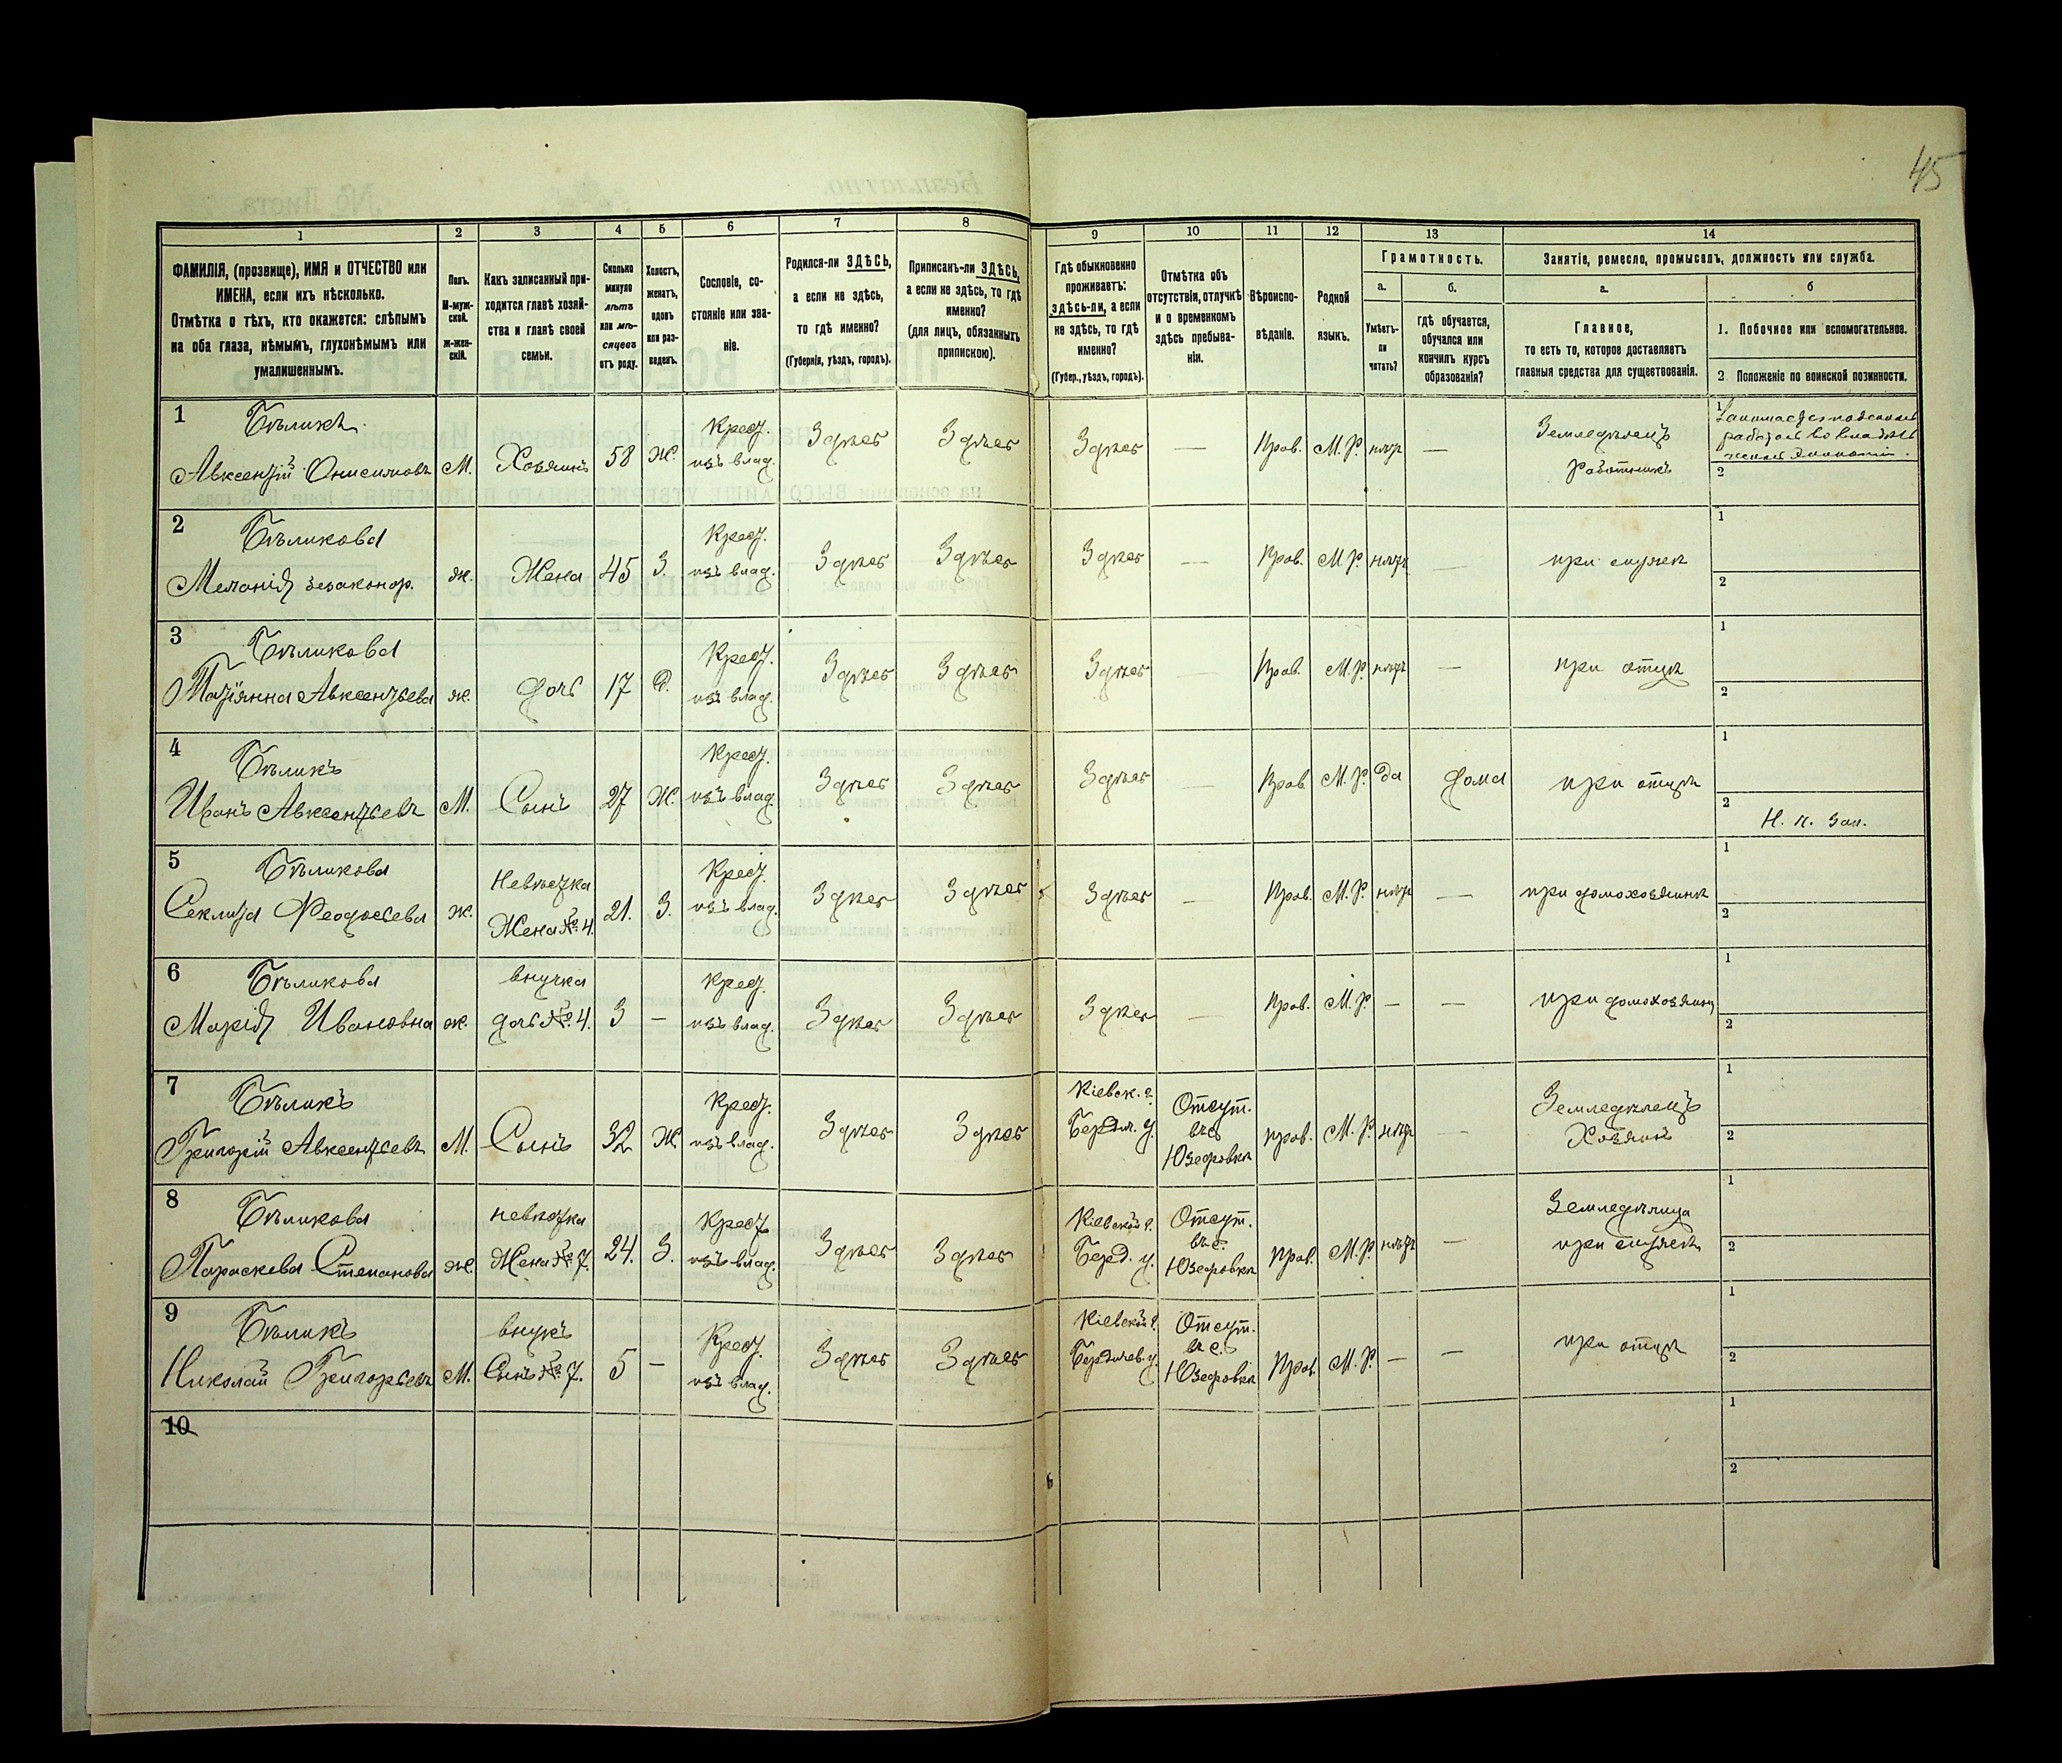 45
1 2 3 4 5 6 7 8 9 10 11 12 13 14
ФАМИЛІЯ, (прозвище), ИМЯ и ОТЧЕСТВО или
ИМЕНА, если ихъ нѣсколько.
Отмѣтка о тѣхъ, кто окажется: слѣпымъ
на оба глаза, нѣмымъ, глухонѣмымъ или
умалишеннымъ.
Полъ.
М-муж-
ской.
ж-жен-
скій.
Какъ записанный при-
ходится главѣ хозяй-
ства и главѣ своей
семьи.
Сколько
минуло
лѣтъ
или мѣ-
сяцевъ
отъ роду.
Холостъ,
женатъ,
вдовъ
или раз-
веденъ.
Сословіе, со-
стояніе или зва-
ніе.
Родился-ли ЗДѢСЬ,
а если не здѣсь,
то гдѣ именно?
(Губернія, уѣздъ, городъ).
Приписанъ-ли ЗДѢСЬ,
а если не здѣсь, то гдѣ
именно?
(для лицъ, обязанныхъ
припискою).
Гдѣ обыкновенно
проживаетъ:
здѣсь-ли, а если
не здѣсь, то гдѣ
именно?
(Губер., уѣздъ, городъ).
Отмѣтка объ
отсутствіи, отлучкѣ
и о временномъ
здѣсь пребыва-
ніи.
Вѣроиспо-
вѣданіе.
Родной
языкъ.
Грамотность.
а.
Умѣетъ-
ли
читать?
б.
гдѣ обучается,
обучался или
кончилъ курсъ
образованія?
Занятіе, ремесло, промыселъ, должность или служба.
а.
Главное,
то есть то, которое доставляетъ
главныя средства для существованія.
б
1. Побочное или вспомогательное.
2 Положеніе по воинской повинности.
1 Бѣликъ
Авксентій Онисимовъ М. Хозяинъ 58 Ж. Крест. изъ влад. Здѣсь Здѣсь Здѣсь — Прав. М. Р. нѣтъ — Земледѣлецъ
работникъ
1
2
2 Бѣликова
Меланія ж. Жена 45 З. Крест. изъ влад. Здѣсь Здѣсь Здѣсь — Прав. М. Р. нѣтъ — при мужѣ
1
2
3 Бѣликова
Татіянна Авксентьева ж. дочь 17 Д. Крест. изъ влад. Здѣсь Здѣсь Здѣсь — Прав. М. Р. нѣтъ — при отцѣ
1
2
4 Бѣликъ
Иванъ Авксентьевъ М. Сынъ 27 Ж. Крест. изъ влад. Здѣсь Здѣсь Здѣсь — Прав. М. Р. да дома при отцѣ
1
2 Н. п. зап.
5 Бѣликова
Секлита Феодосьева ж. Невѣстка
Жена № 4. 21. З. Крест. изъ влад. Здѣсь Здѣсь Здѣсь — Прав. М. Р. нѣтъ — при домохозяинѣ
1
2
6 Бѣликова
Марія Ивановна ж. внучка
дочь № 4. 3 — Крест. изъ влад. Здѣсь Здѣсь Здѣсь — Прав. М. Р. — — при домохозяинѣ
1
2
7 Бѣликъ
Григорій Авксентьевъ М. Сынъ 32 Ж. Крест. изъ влад. Здѣсь Здѣсь Кіевск. г.
Бердич. у. Отсут.
въ с.
Юзефовкѣ прав. М. Р. нѣтъ — Земледѣлецъ
Хозяинъ
1
2
8 Бѣликова
Параскева Степанова ж. невѣстка
Жена № 7. 24. З. Крест. изъ влад. Здѣсь Здѣсь Кіевской г.
Берд. у. Отсут.
въ с.
Юзефовкѣ прав. М. Р. нѣтъ — Земледѣлица
при мужѣ
1
2
9 Бѣликъ
Николай Григорьевъ М. внукъ
Сынъ № 7. 5 — Крест. изъ влад. Здѣсь Здѣсь Кіевской г.
Бердичев. у. Отсут.
въ с.
Юзефовкѣ Прав. М. Р. — — при отцѣ
1
2
10
1
2